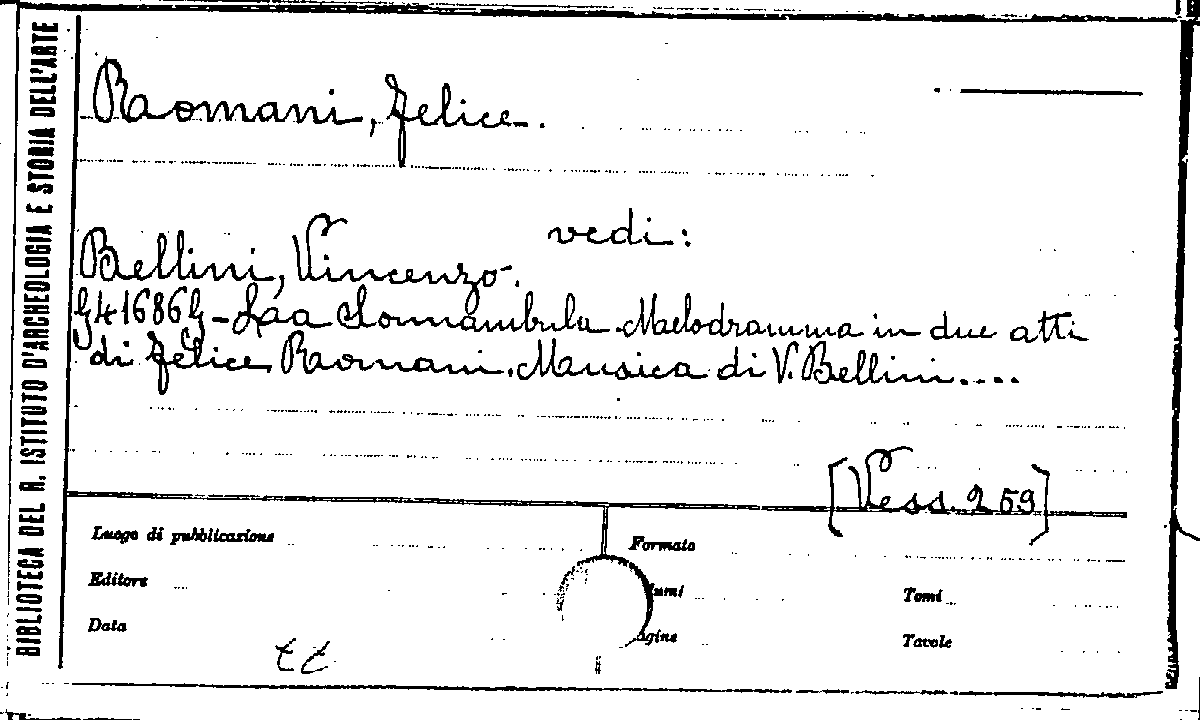 BIBLIOTECA DEL R. ISTITUTO D'ARCHEOLOGIA E STORIA DELL'ARTE
Romani, Felice.
vedi:
Bellini, Vincenzo.
G41686G - Laa Sonnambula Melodramma in due atti
di Felice Romani. Musica di V. Bellini....
[Vess. 259]
Luogo di pubblicazione
Formato
Editore
umi
Tomi
Data
agine
Tavole